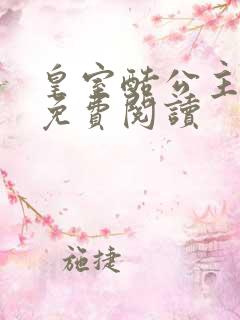 皇室酷公主
免費閱讀
施捷